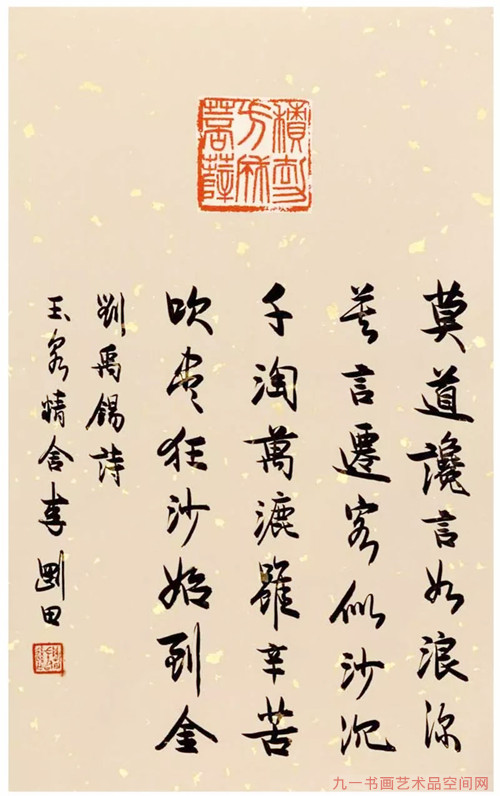 莫道讒言如浪深
莫言遷客似沙沉
千淘萬漉雖辛苦
吹盡狂沙始到金
劉禹錫詩
玉泉精舍李剛田
九一书画艺术品空间网